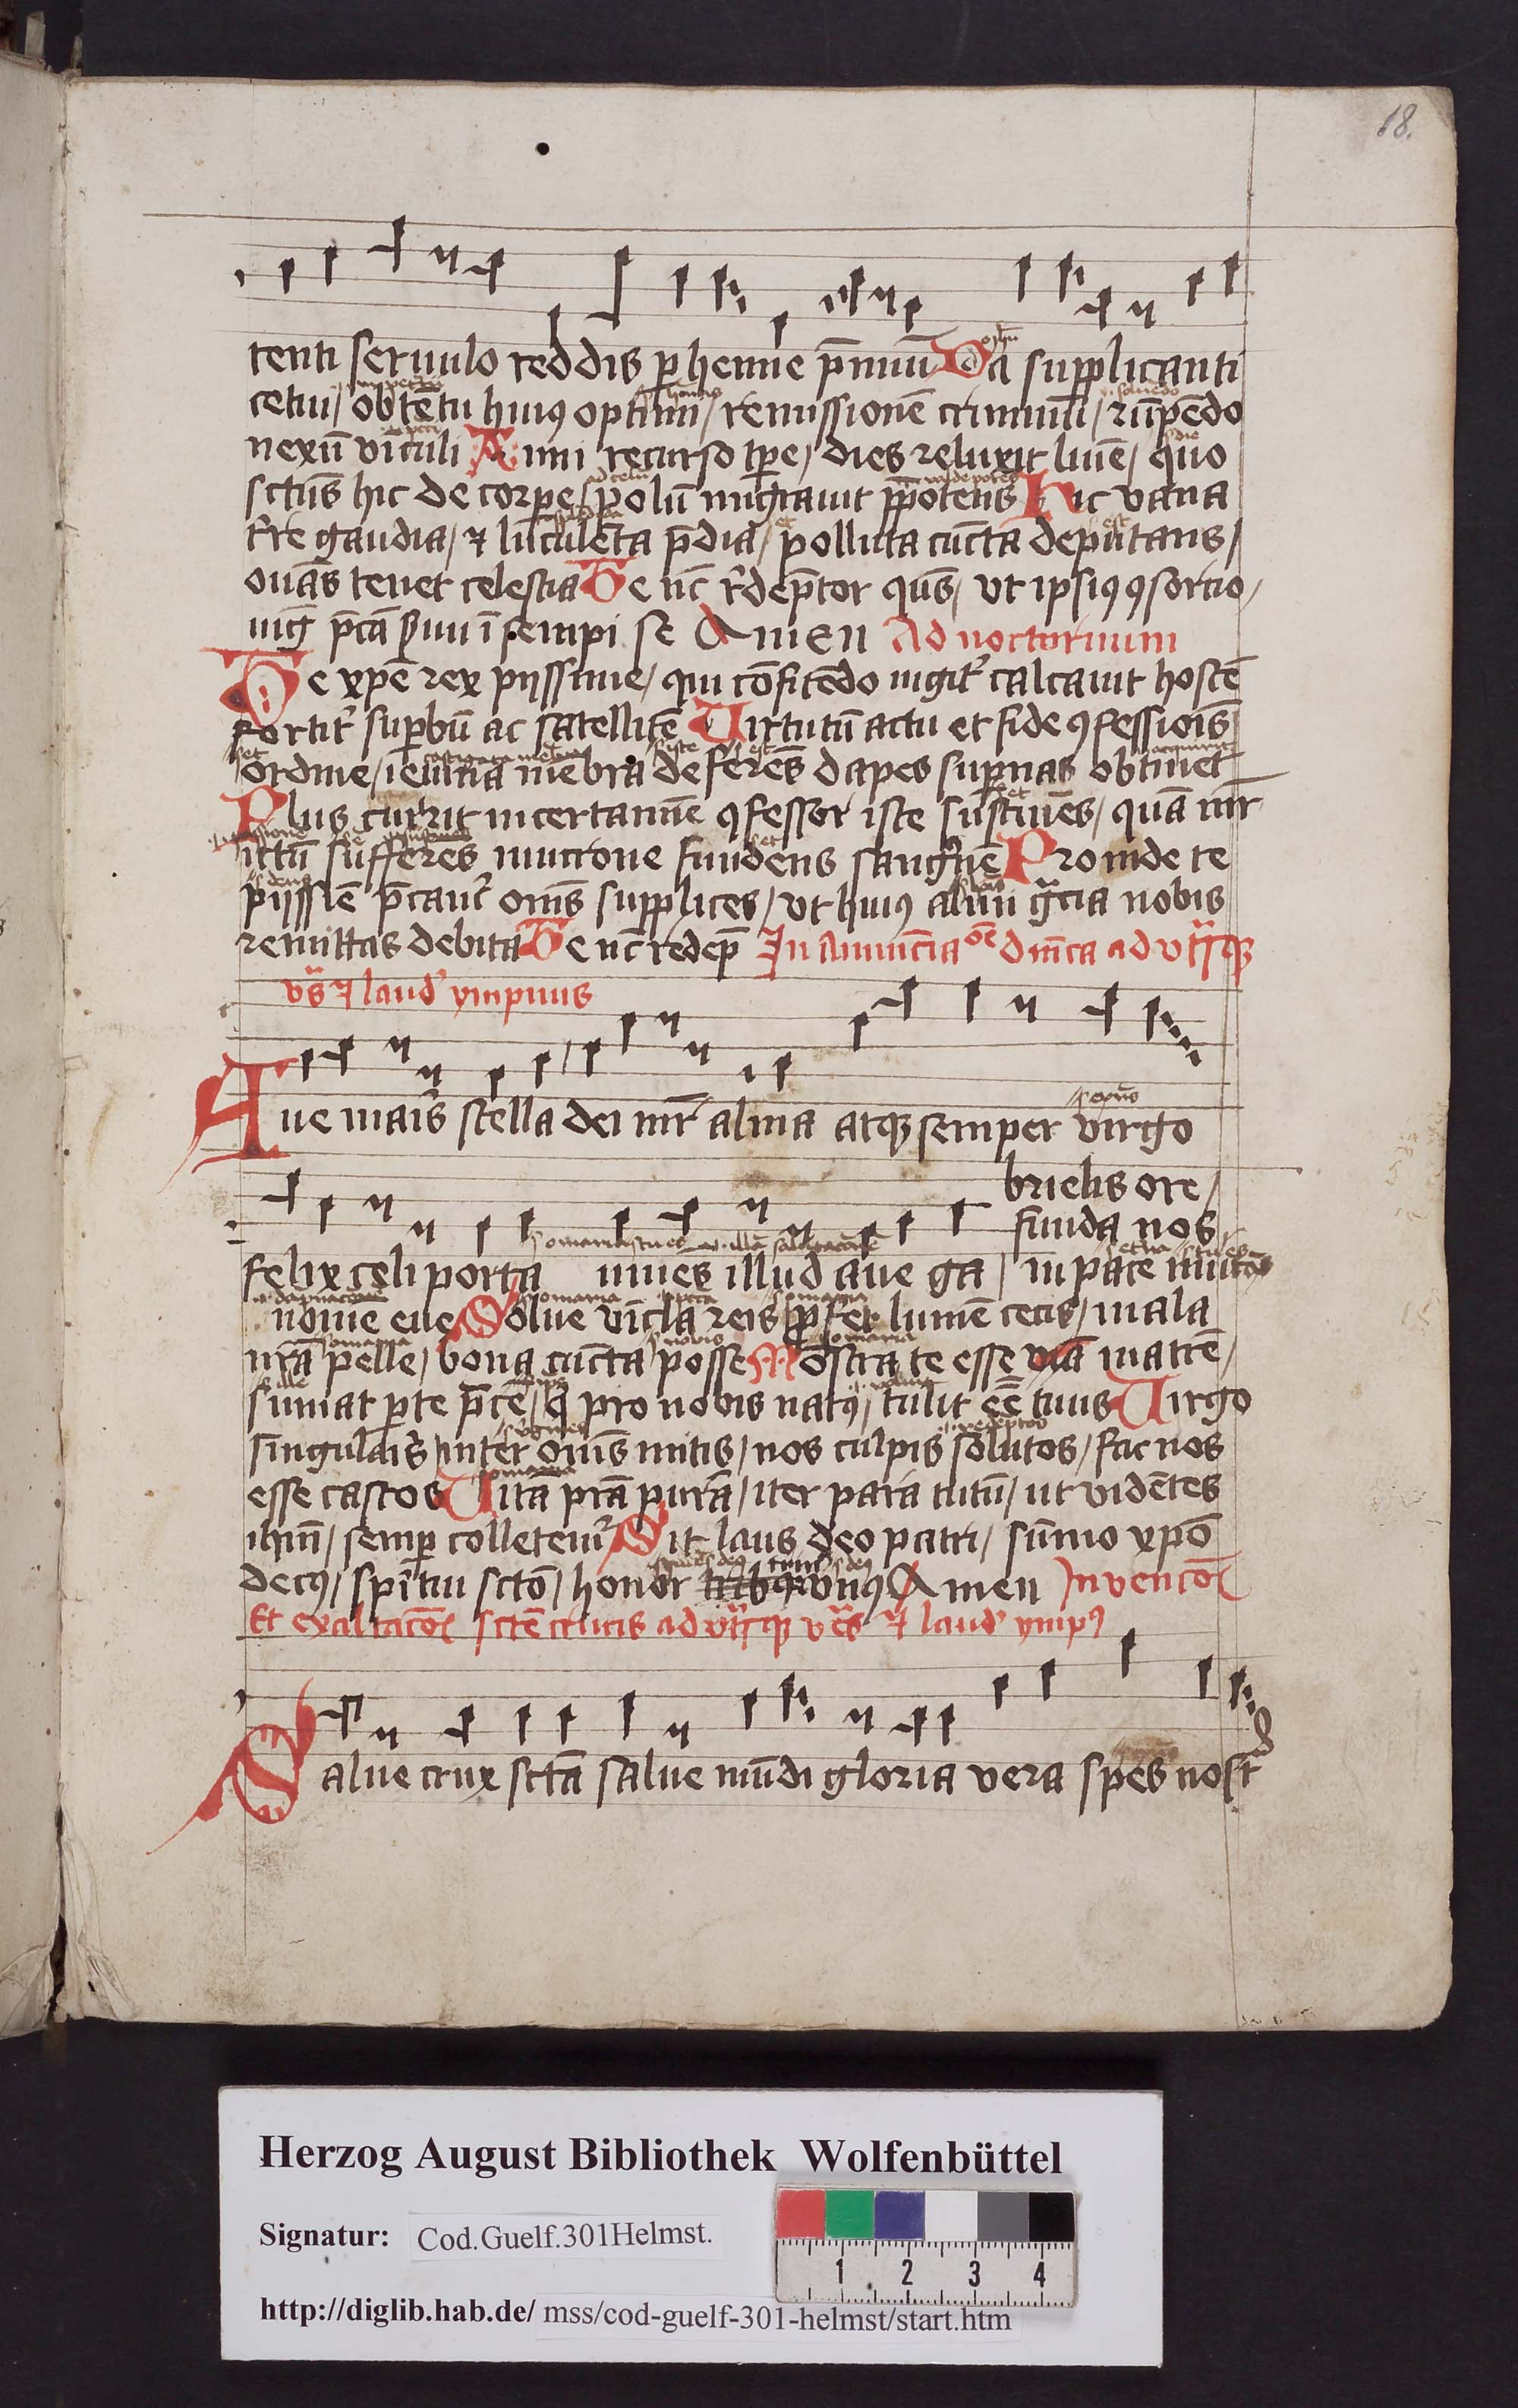 18.
tenti seruulo reddis p henne p̄miū Da supplicanti
cetui / obtētu huiꝰ optimi / remissionē criminū / rūpēdo
nexū vīculi Anni recurso tp̄e / dies reluxit lumē / quo
sctūs hic de corpe / polū migrauit p̄potens Hic vana
tr̄re gaudia / ⁊ luculēta p̄dia / polluta cūcta deputans /
ouās tenet celestia Te nc̄ r̄dēptor qus̄ / vt ipsiꝰ ꝯsortio /
iūḡ p̄ca s̄bui ī sempi se Amen Ad nocturnum
Te xp̄e rex pijssime / qui cōfitēdo iugit̉ calcauit hostē
fortit̉ sup̄bū ac satellitē Virtutū actu et fide ꝯfessiōis
ordine / ieiuna mēbra deferēs dapes sup̄nas obtinet
Plus currit in certamīe ꝯfessor iste sustinēs / quā mr̄
ictū sufferēs mucrone fundens sangⁱnē Proinde te
pijssīe p̄camr̉ om̄s supplices / vt huiꝰ almi gr̄cia nobis
remittas debita Te nc̄ redēp̄ In Annūcia oē dn̄ica ad vtr̄sqꝫ
vs̄ ⁊ laud̉ ympnus
Aue maris stella dei mr̄ alma atqꝫ semper virgo
brielis ore /
funda nos
felix celi porta mues illud aue ga / in pace mutās
nomē eue Solue vīcla reis p̄fer lumē cecis / mala
nrā pelle / bona cūcta posse Mōstra te esse matrē /
sumat p̄ te p̄cē / q̄ pro nobis natꝰ / tulit eē tuus Virgo
singularis / inter om̄s mitis / nos culpis solutos / fac nos
esse castos Vitā prā purā / iter para tutū / ut vidētes
ihm̄ / semp̄ colletemr̉ Sit laus deo patri / sūmo xp̄o
decꝰ / spīritui sctō / honor vnꝰ Amen Invencōe
Et exaltacōe sctē crucis ad vtr̄sqꝫ v̄es ⁊ laud̉ ympꝰ
Salue crux sctā salue mūdi gloria vera spes nostr̄
Herzog August Bibliothek Wolfenbüttel
Signatur: Cod.Guelf.301Helmst.
1 2 3 4
http://diglib.hab.de/ mss/cod-guelf-301-helmst/start.htm